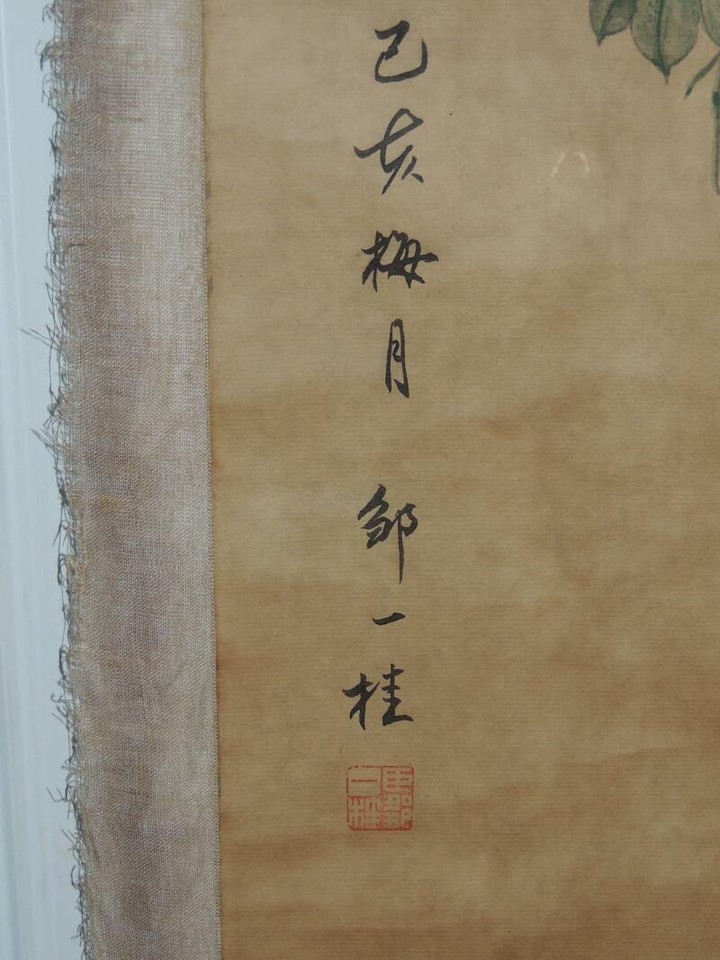 己亥梅月 邹一桂
臣邹一桂